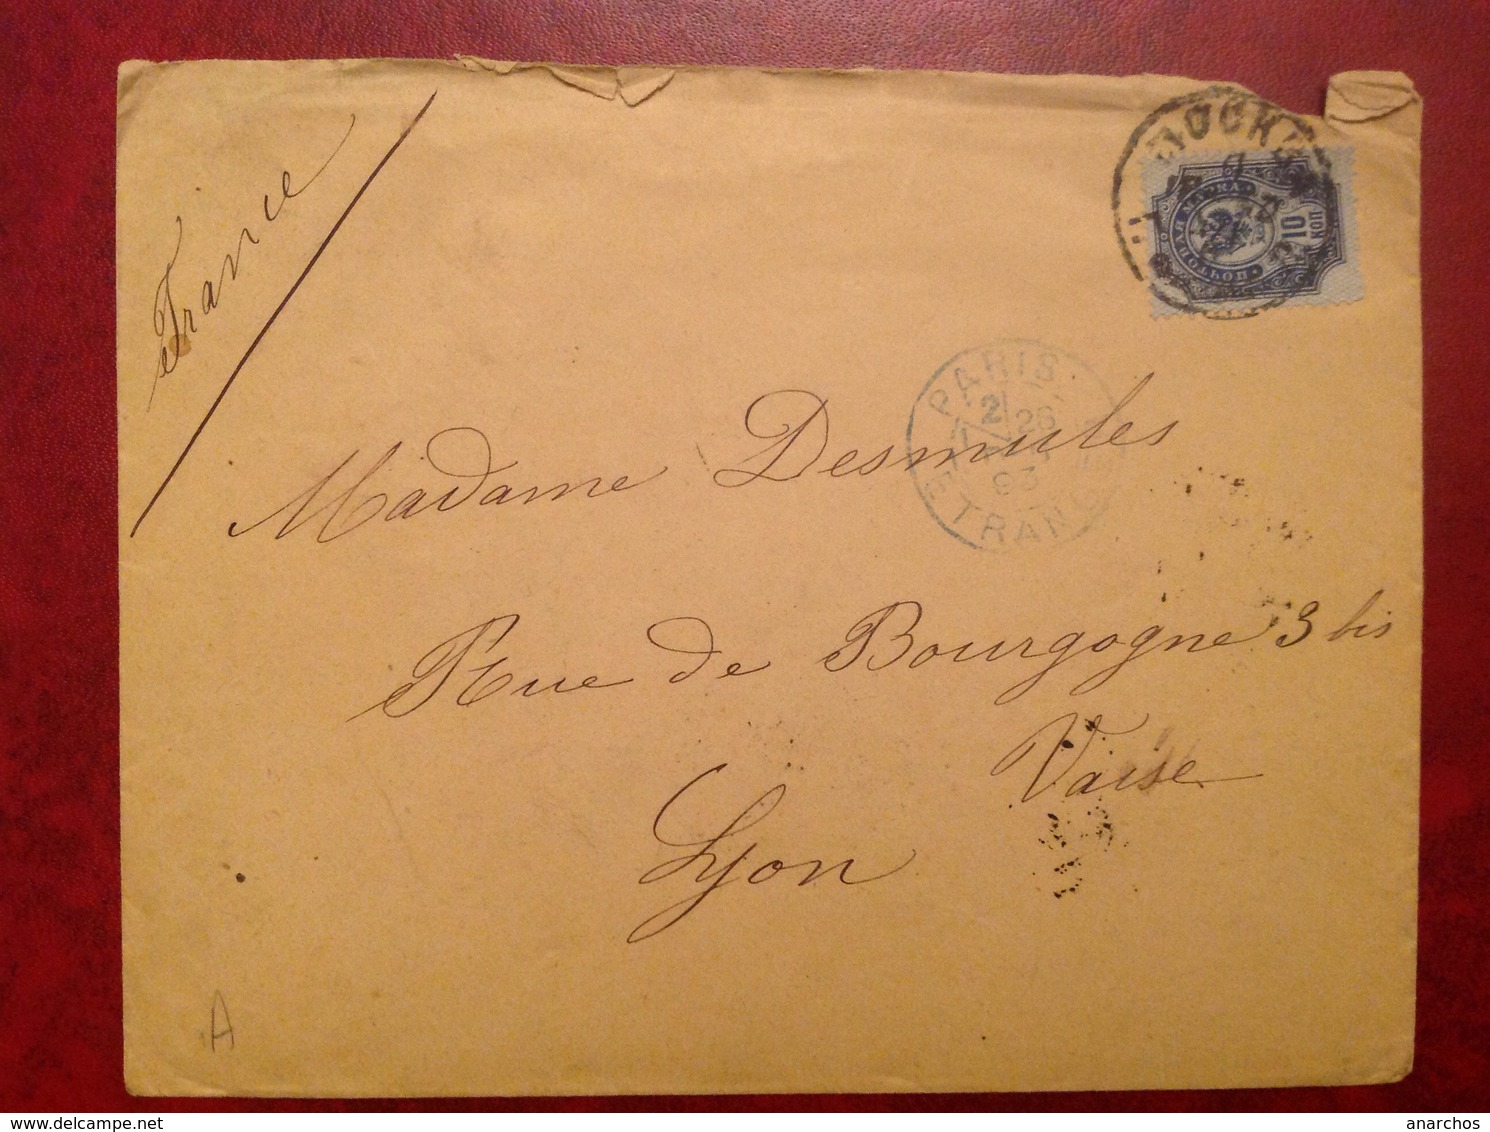 France
МОСКВА
ПОЧТОВАЯ МАРКА
10 КОП
PARIS
2
28
93
ETRANG
Madame Desmules
Rue de Bourgogne 3 bis
Vaise
Lyon
A
anarchos